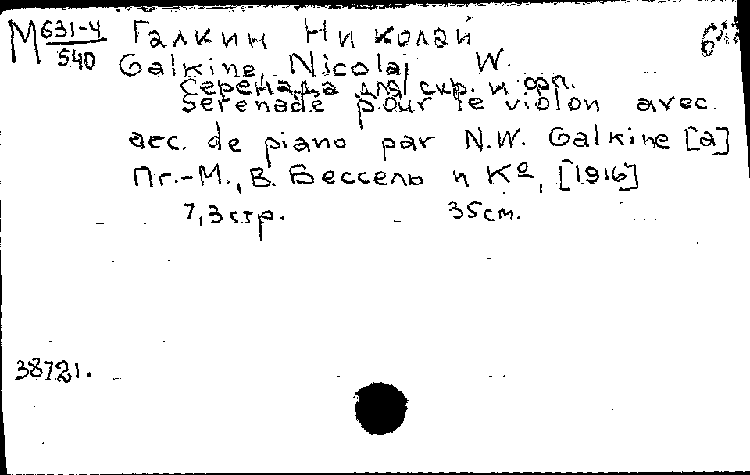 М 631-4/540 Галкин Николай
Galkine, Nicolai W.
Серенада для скр. и фп.
Serenade pour le violon avec
acc. de piano par N.W. Galkine [a]
Пг.-М., В. Бессель и Кº, [1916]
7, 3 стр. 35 см.
38721.